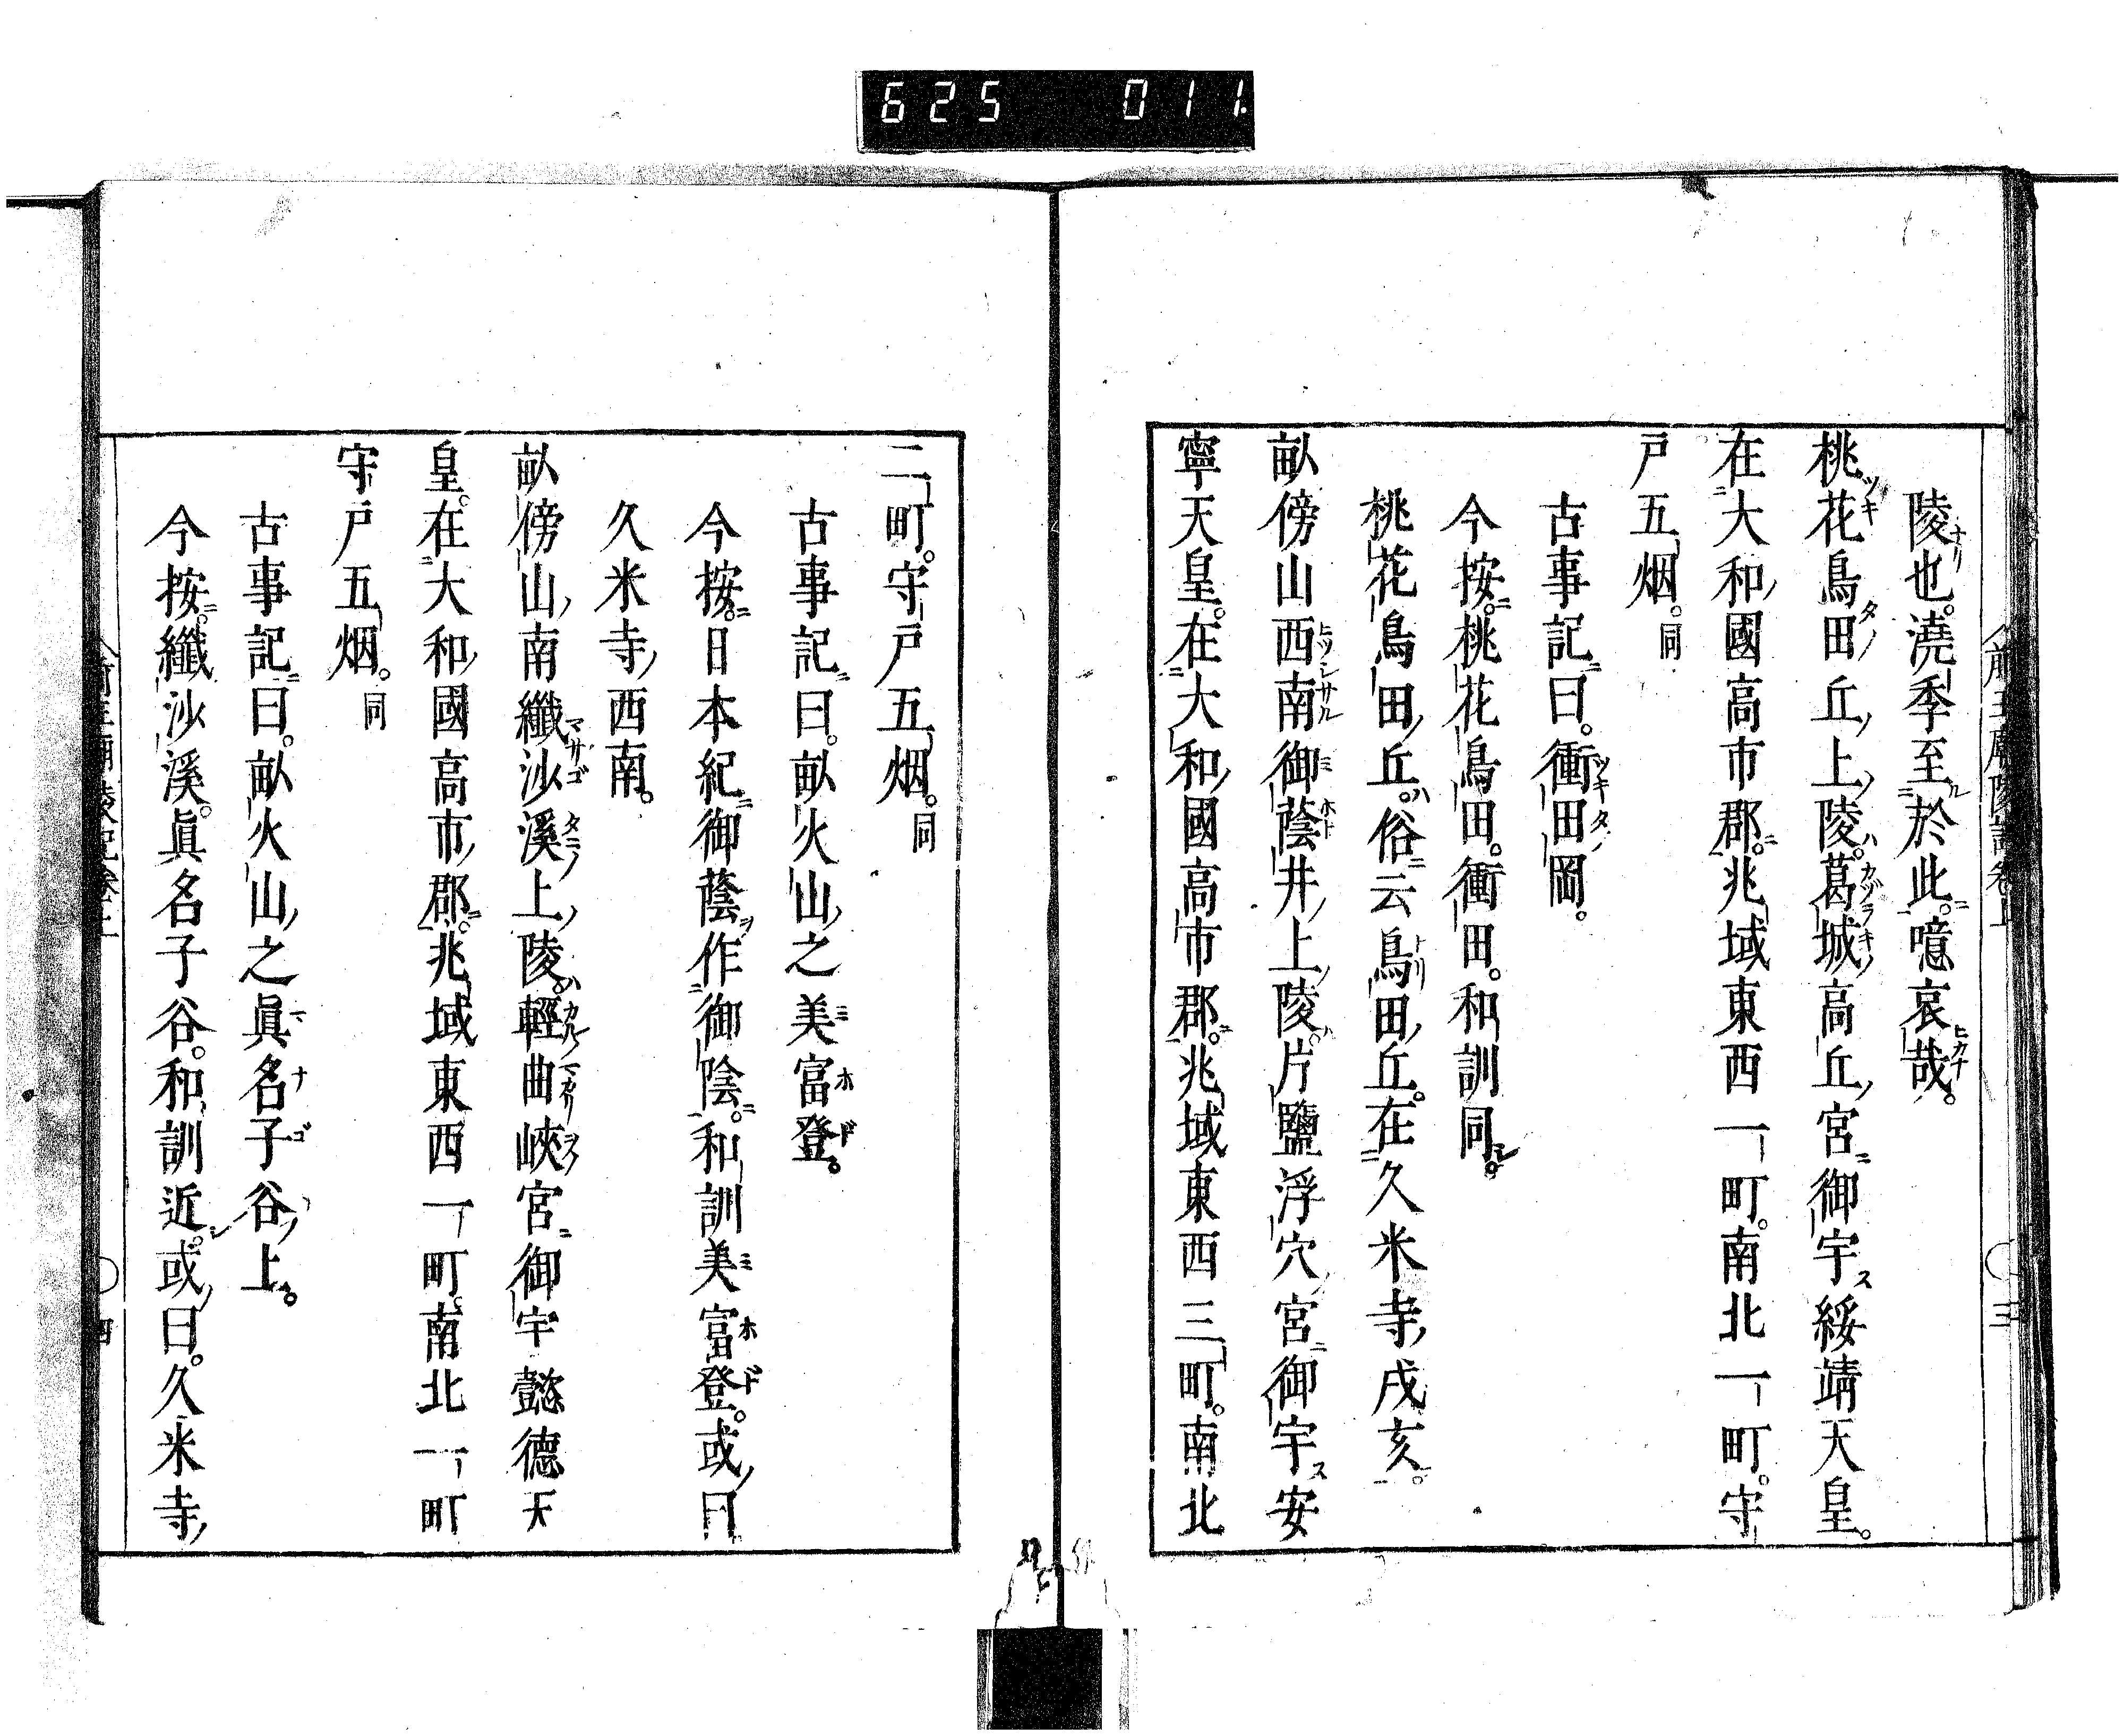 625 011
前王廟陵記卷上 三
陵也。澆季至於此。噫哀哉。
桃花鳥田丘上陵。葛城高丘宮御宇綏靖天皇。
在大和國高市郡。兆域東西一町。南北一町。守
戸五烟。同
古事記曰。衝田岡。
今按。桃花鳥田。衝田。和訓同。
桃花鳥田丘。俗云鳥田丘。在久米寺戌亥。
畝傍山西南御蔭井上陵。片鹽浮穴宮御宇安
寧天皇。在大和國高市郡。兆域東西三町。南北
二町。守戸五烟。同
古事記曰。畝火山之美富登。
今按。日本紀御蔭作御陰。和訓美富登。或曰
久米寺西南。
畝傍山南纖沙溪上陵。輕曲峽宮御宇懿德天
皇。在大和國高市郡。兆域東西一町。南北一町
守戸五烟。同
古事記曰。畝火山之眞名子谷上。
今按。纖沙溪。眞名子谷。和訓近。或曰。久米寺
前王廟陵記卷上 四